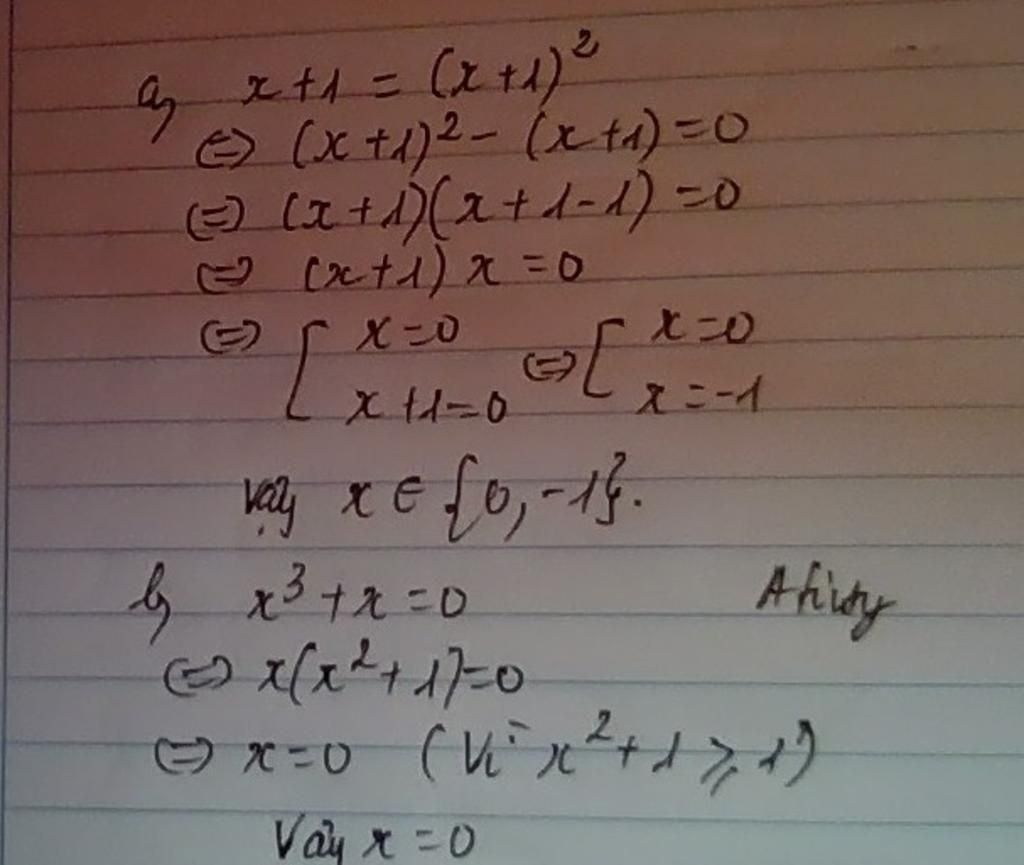 a) x + 1 = (x + 1)²
⇔ (x + 1)² - (x + 1) = 0
⇔ (x + 1)(x + 1 - 1) = 0
⇔ (x + 1) x = 0
⇔ [ x = 0 ⇔ [ x = 0
x + 1 = 0 x = -1
Vậy x ∈ {0, -1}.
b) x³ + x = 0
⇔ x(x² + 1) = 0
⇔ x = 0 (Vì x² + 1 ⩾ 1)
Vậy x = 0